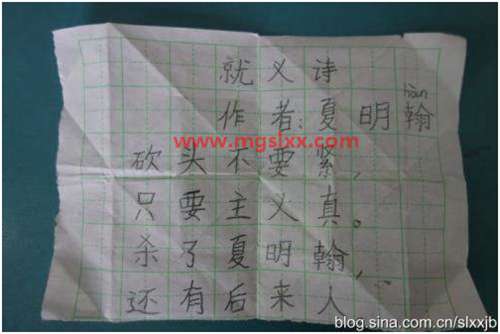 就义诗
作者:夏明翰
hàn
www.mgslxx.com
砍头不要紧,
只要主义真。
杀了夏明翰,
还有后来人
blog.sina.com.cn/slxxjb